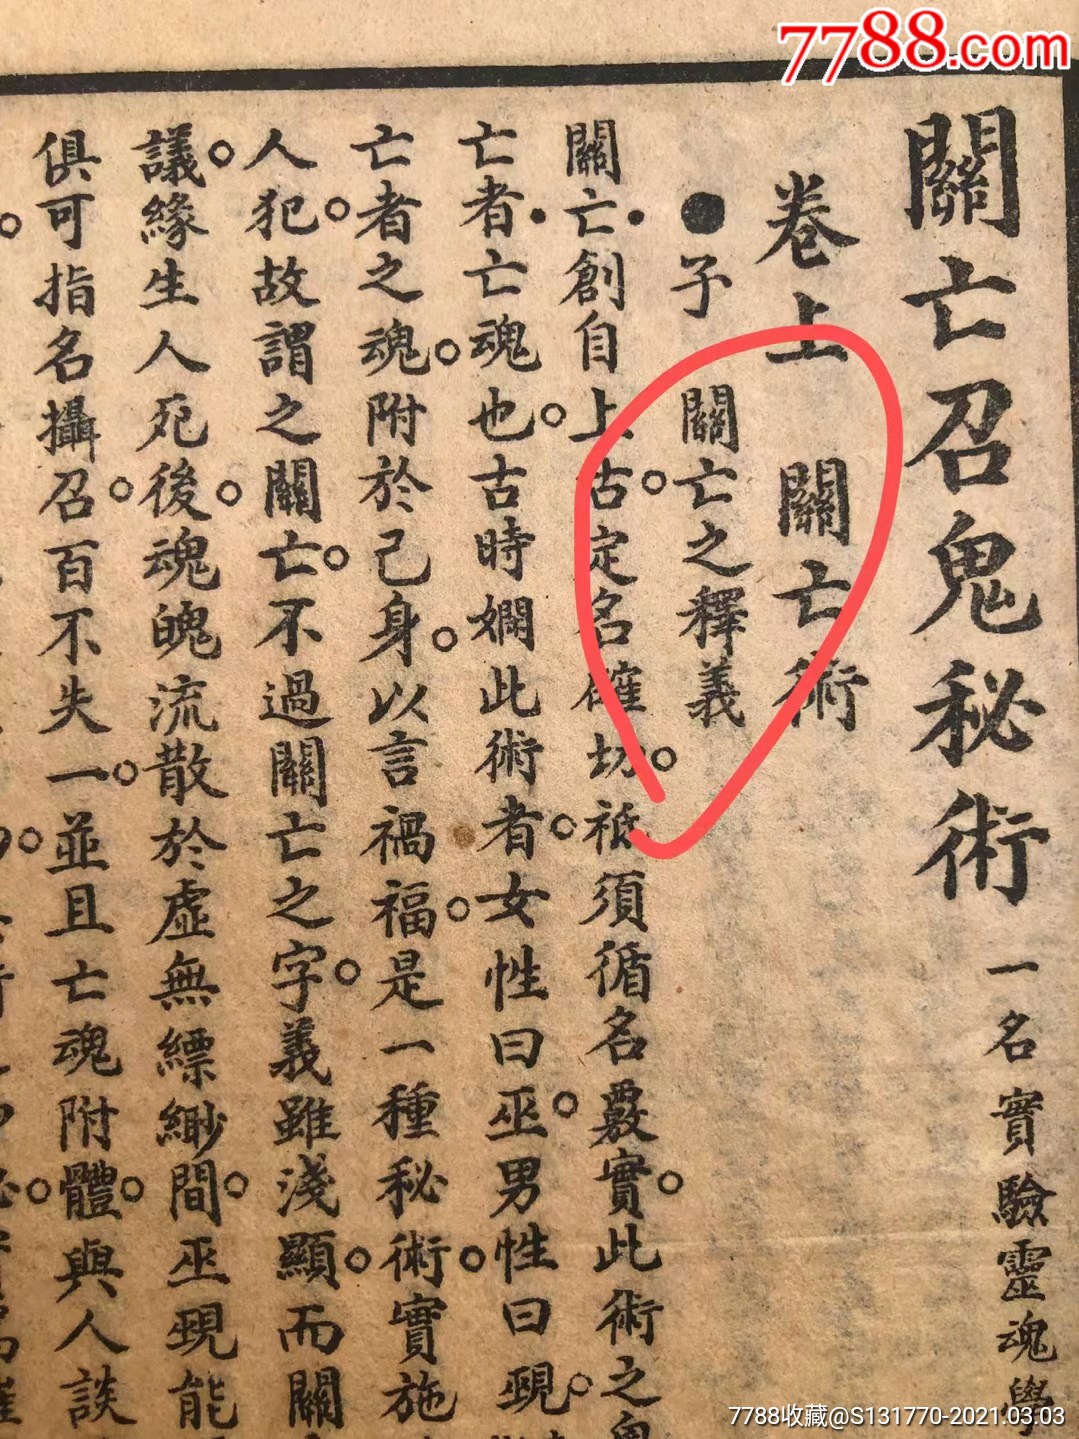 7788.com
關亡召鬼秘術 一名實驗靈魂學
卷上 關亡術
●子 關亡之釋義
關亡創自上古。定名確切。祗須循名覈實。此術之
亡者亡魂也。古時嫺此術者。女性曰巫。男性曰覡。
亡者之魂。附於己身。以言禍福。是一種秘術。實施
人犯。故謂之關亡。不過關亡之字。義雖淺顯。而關
議。緣生人死後。魂魄流散於虛無縹緲間。巫覡能
俱可指名攝召。百不失一。並且亡魂附體。與人談
7788收藏@S131770-2021.03.03